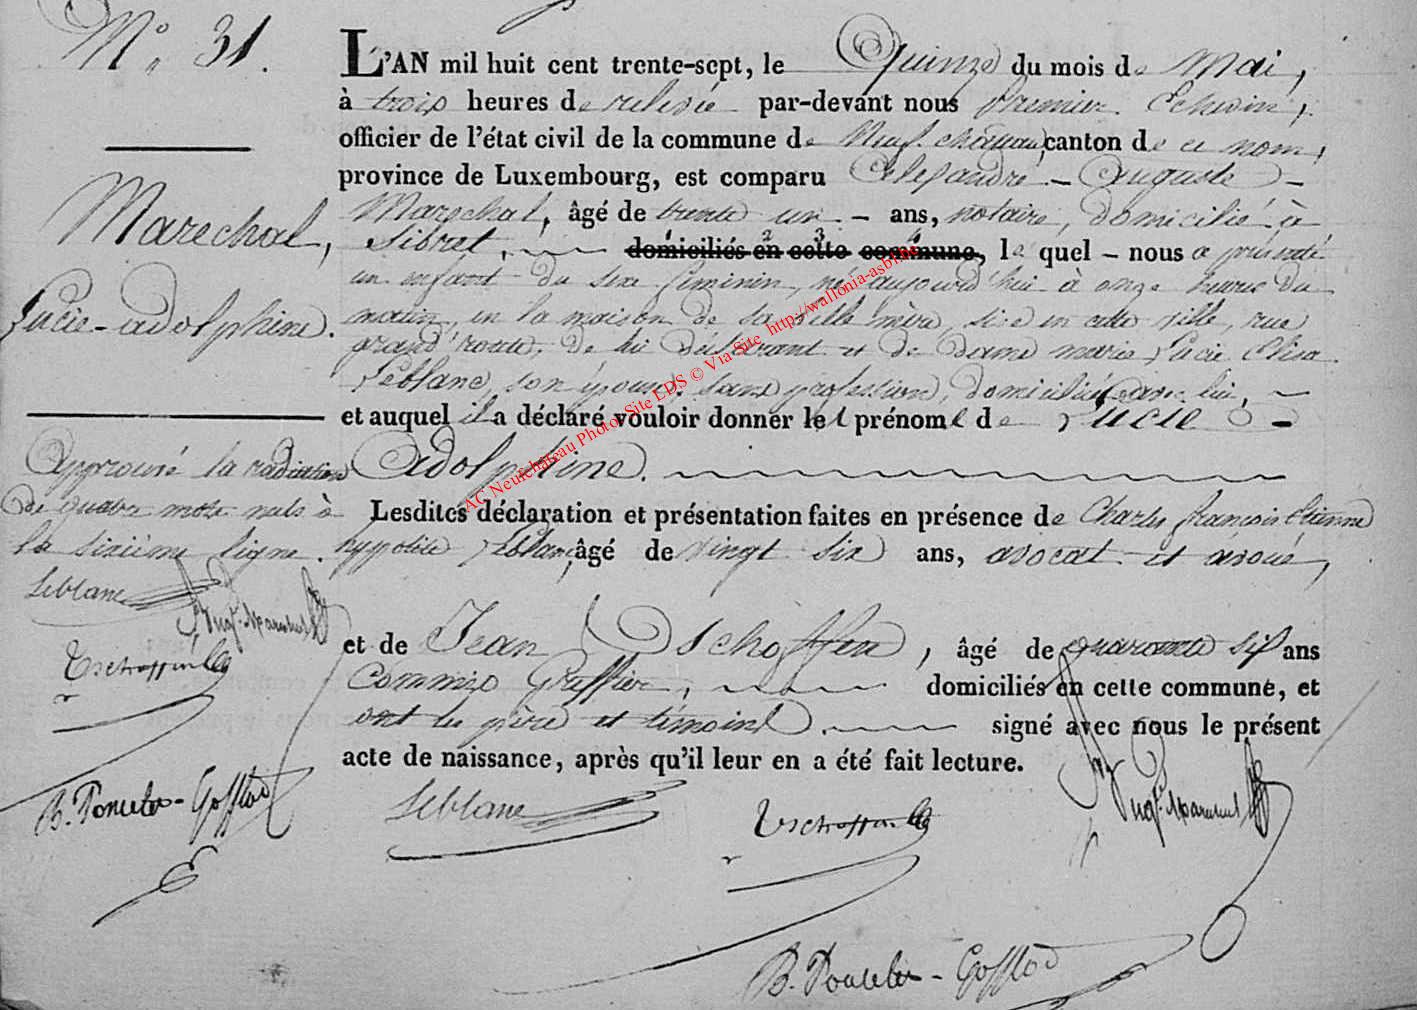 N° 31.
Marechal,
Lucie-adolphine.
Approuvé la radiation
de quatre mots nuls à
la sixième ligne.
Leblanc
Aug. Marechal
Tschoffen
B. Poncelet-Gofflot
L'AN mil huit cent trente-sept, le Quinze du mois de Mai,
à trois heures de relevée par-devant nous Premier Echevin,
officier de l'état civil de la commune de Neufchâteau, canton de ce nom,
province de Luxembourg, est comparu Alexandre - Auguste -
Marechal, âgé de trente un - ans, notaire, domicilié à
Sibret, 1 2 3 4 domiciliés en cette commune, le quel - nous a présenté
un enfant du sexe féminin, né aujourd'hui à onze heures du
matin, en la maison de sa belle mère, sise en cette ville, rue
grand'route, de lui déclarant et de Dame marie Lucie Elisa
Leblanc, son épouse, sans profession, domiciliée avec lui,
et auquel il a déclaré vouloir donner les prénoms de Lucie -
Adolphine.
Lesdites déclaration et présentation faites en présence de Charles françois Etienne
hypolite Leblanc, âgé de vingt six ans, avocat et avoué,
et de Jean Tschoffen, âgé de quarante six ans
Commis Greffier, domiciliés en cette commune, et
ont les père et témoins signé avec nous le présent
acte de naissance, après qu'il leur en a été fait lecture.
Leblanc
Tschoffen
Aug. Marechal
B. Poncelet-Gofflot
AC Neufchâteau Photo Site EDS © Via Site http://wallonia-asbl.be